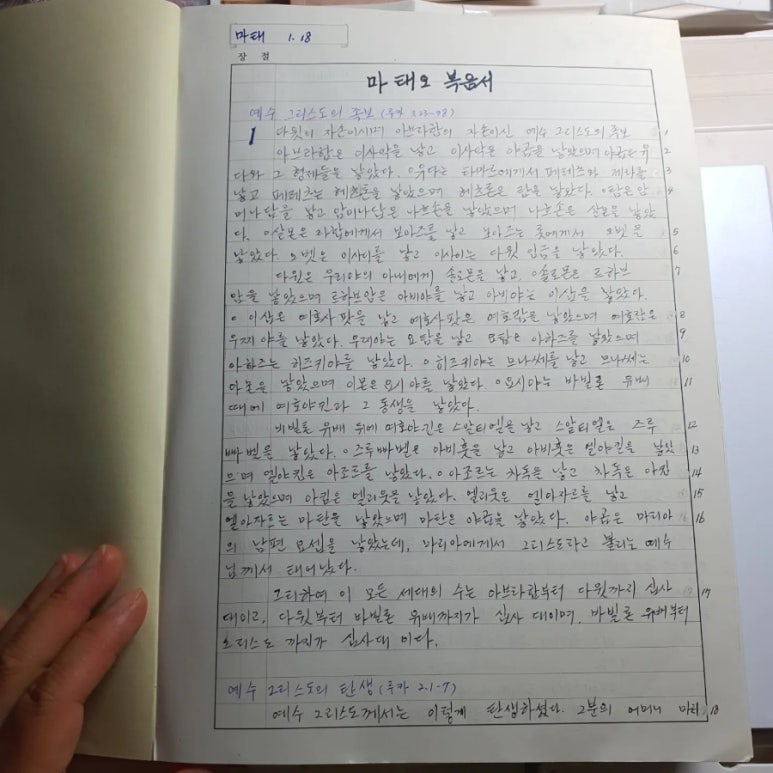 마태 1. 18
장 절
마태오 복음서
예수 그리스도의 족보 (루카 3.23-38)
1 다윗의 자손이시며 아브라함의 자손이신 예수 그리스도의 족보 1
아브라함은 이사악을 낳고 이사악은 야곱을 낳았으며 야곱은 유 2
다와 그 형제들을 낳았다. 유다는 타마르에게서 페레츠와 제라를 3
낳고 페레츠는 헤츠론을 낳았으며 헤츠론은 람을 낳았다. 람은 암 4
미나답을 낳고 암미나답은 나흐손을 낳았으며 나흐손은 살몬을 낳았
다. 살몬은 라합에게서 보아즈를 낳고 보아즈는 룻에게서 오벳을 5
낳았다. 오벳은 이사이를 낳고 이사이는 다윗 임금을 낳았다. 6
다윗은 우리야의 아내에게 솔로몬을 낳고, 솔로몬은 르하브 7
암을 낳았으며 르하브암은 아비야를 낳고 아비야는 이삽을 낳았다.
이삽은 여호사팟을 낳고 여호사팟은 여호람을 낳았으며 여호람은 8
우찌야를 낳았다. 우찌야는 요탐을 낳고 요탐은 아하즈를 낳았으며 9
아하즈는 히즈키야를 낳았다. 히즈키야는 므나쎄를 낳고 므나쎄는 10
아몬을 낳았으며 아몬은 요시야를 낳았다. 요시야는 바빌론 유배 11
때에 여호야킨과 그 동생을 낳았다.
바빌론 유배 뒤에 여호야킨은 스알티엘을 낳고 스알티엘은 즈루 12
빠벨을 낳았다. 즈루빠벨은 아비훗을 낳고 아비훗은 엘야킴을 낳았 13
으며 엘야킴은 아조르를 낳았다. 아조르는 차독을 낳고 차독은 아킴 14
을 낳았으며 아킴은 엘리웃을 낳았다. 엘리웃은 엘아자르를 낳고 15
엘아자르는 마탄을 낳았으며 마탄은 야곱을 낳았다. 야곱은 마리아 16
의 남편 요셉을 낳았는데, 마리아에게서 그리스도라고 불리는 예수
님께서 태어났다.
그리하여 이 모든 세대의 수는 아브라함부터 다윗까지 십사 17
대이고, 다윗부터 바빌론 유배까지가 십사 대이며, 바빌론 유배부터
그리스도 까지가 십사대 이다.
예수 그리스도의 탄생 (루카 2.1-7)
예수 그리스도께서는 이렇게 탄생하셨다. 그분의 어머니 마리 18